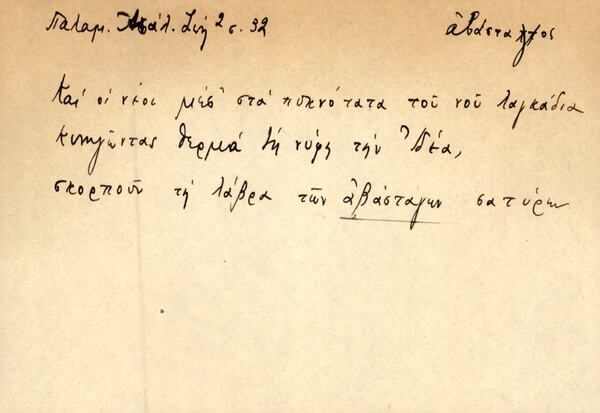 Παλαμ. Ἀσάλ. Ζωή² σ. 92 ἀβάσταγος
Καί οἱ νέοι μέσ' στά πυκνότατα τοῦ νοῦ λαγκάδια
κυνηγῶντας θερμά τή νύφη τήν Ἰδέα,
σκορποῦν τή λάβρα τῶν ἀβάσταγων σατύρων